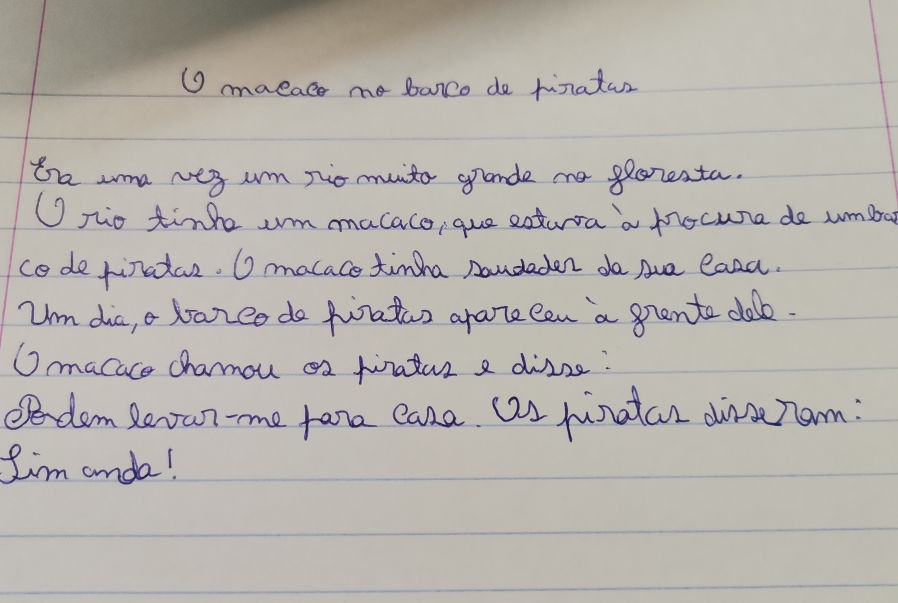 O macaco no barco de piratas
Era uma vez um rio muito grande na floresta.
O rio tinha um macaco, que estava à procura de um bar
co de piratas. O macaco tinha saudades da sua casa.
Um dia, o barco de piratas apareceu à frente dele.
O macaco chamou os piratas e disse:
Podem levar-me para casa. Os piratas disseram:
Sim anda!